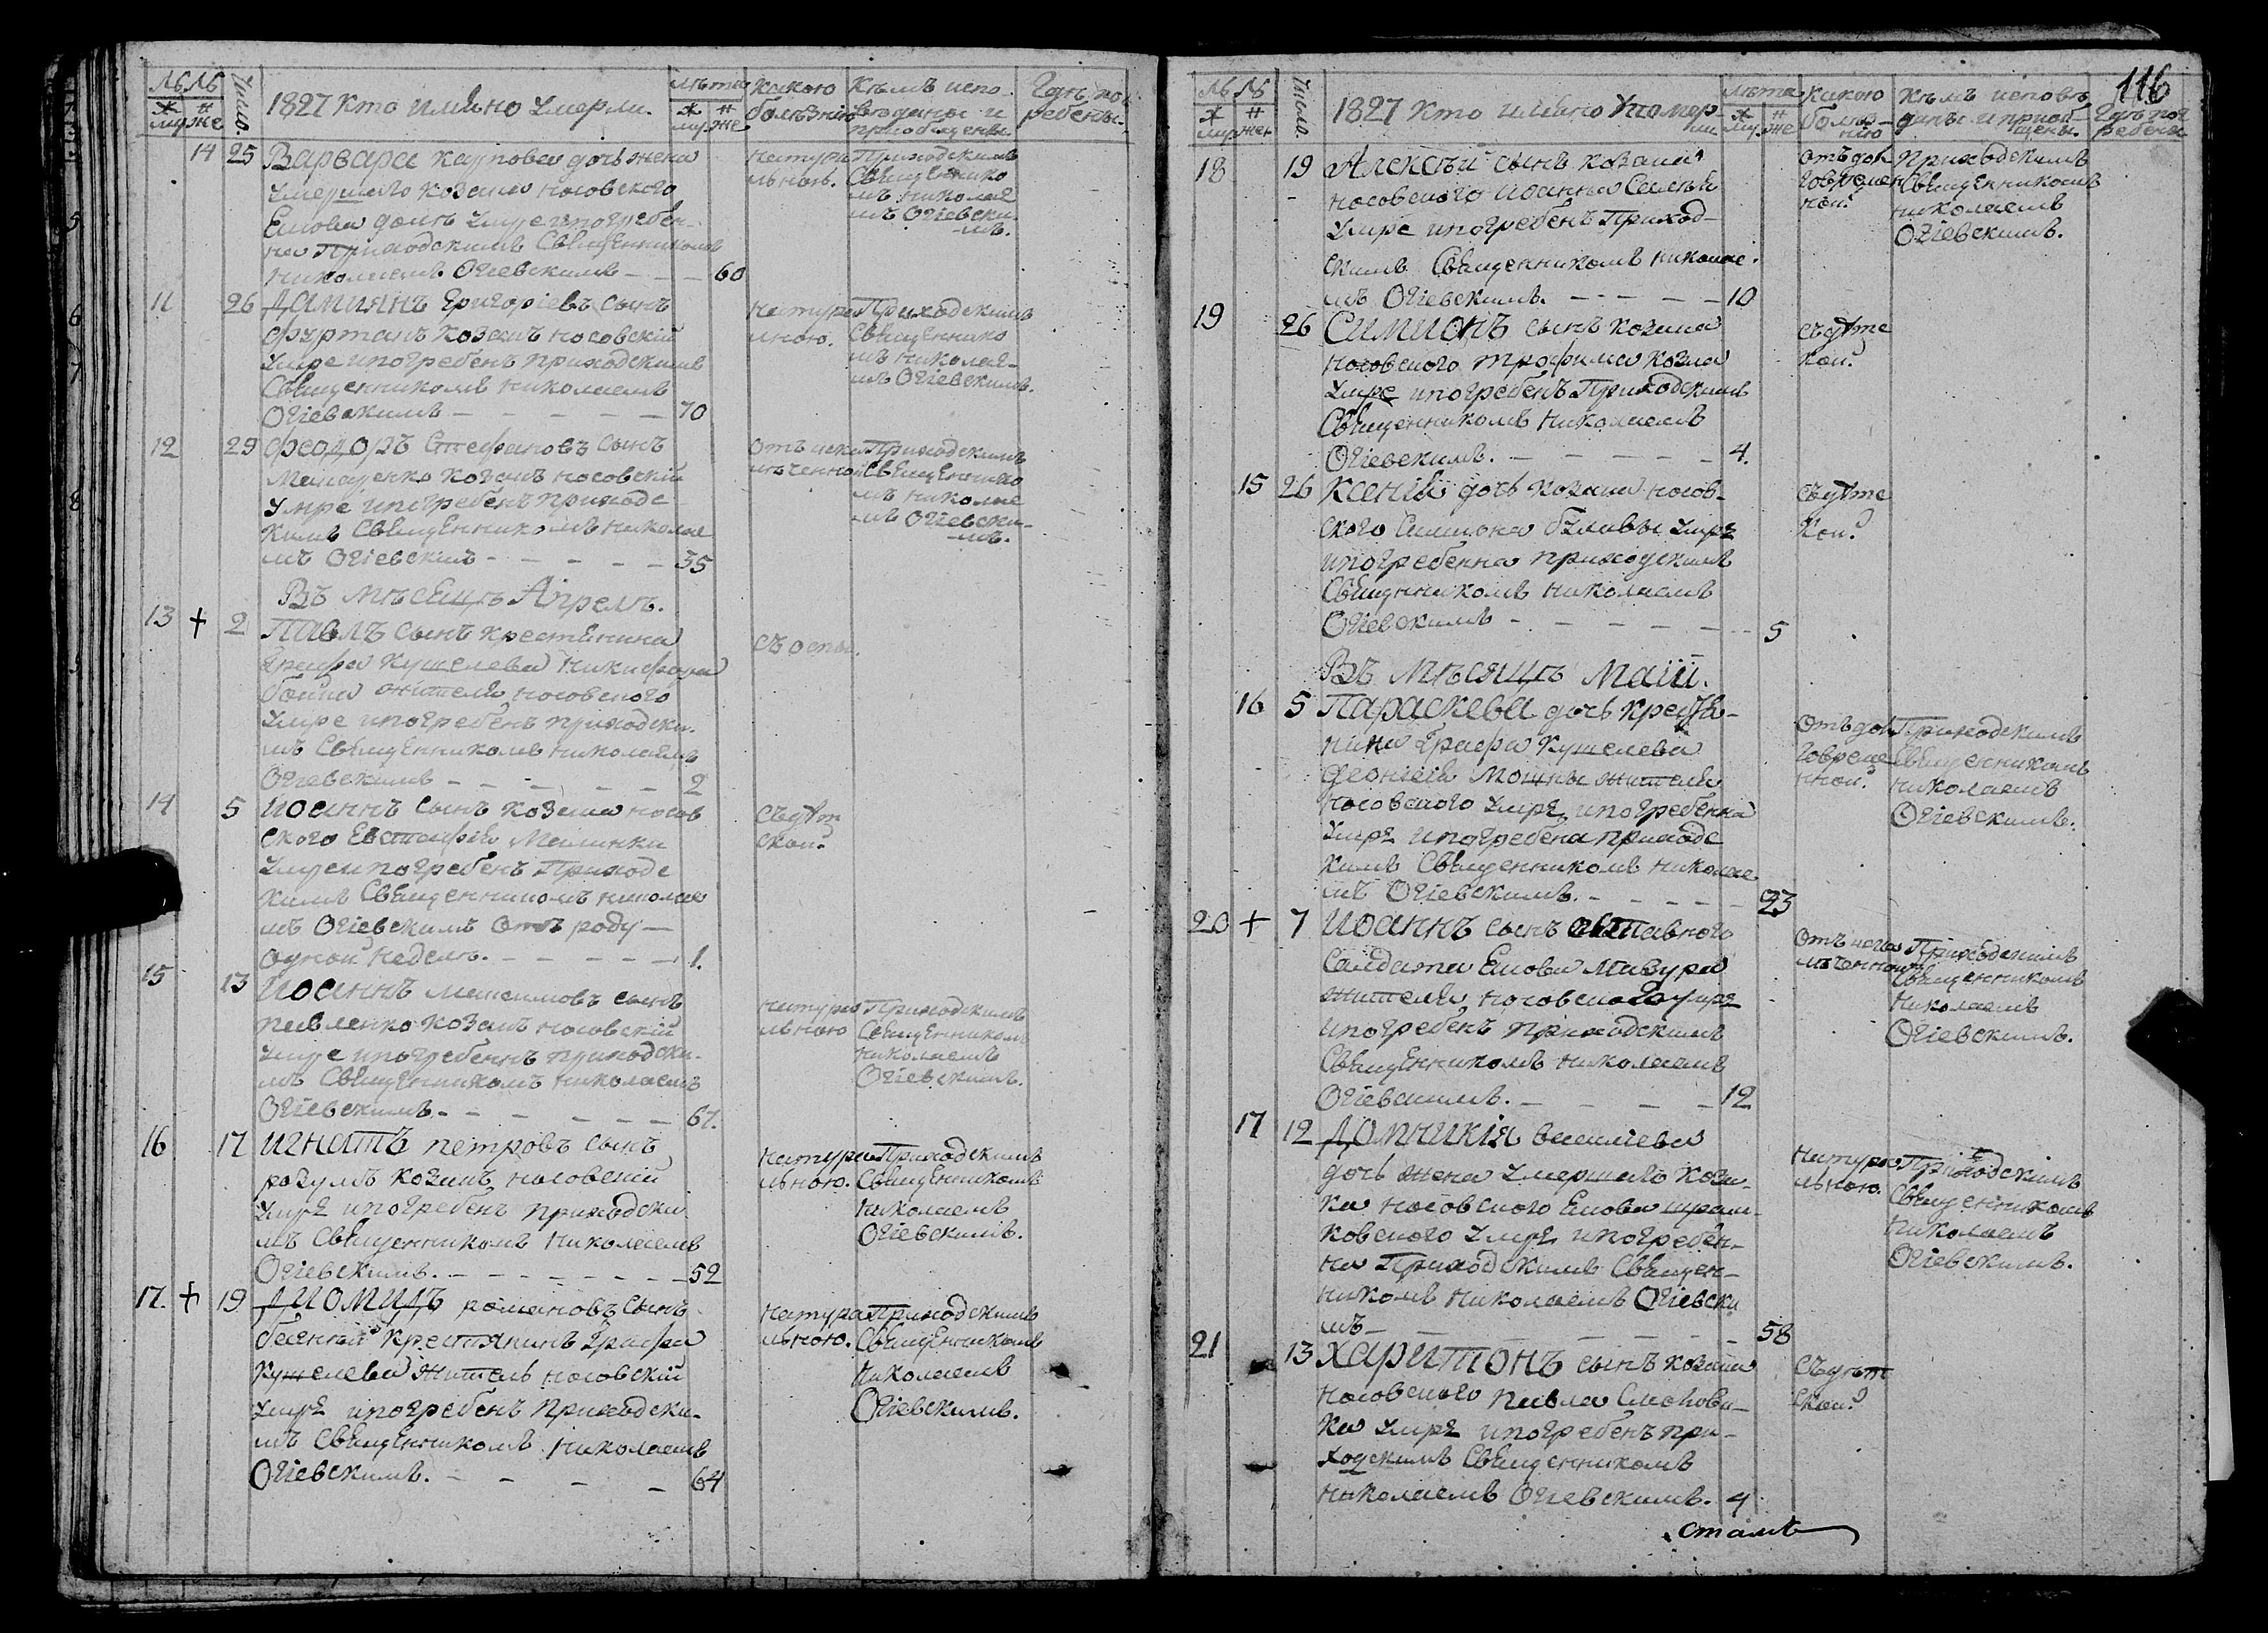 № №
муж же
Число.
1827 Кто имяно Умерли.
лѣта
му же
какою болѣзнію
Кѣмъ испо
вѣданы и
приобщены
Гдѣ по
гребены.
14 25 Варвара Карпова дочь жена
умершаго козака носовского
умре и погребен
на Приходскимъ Священникомъ
Николаемъ Огіевскимъ - - - 60
натура
льною.
Приходскимъ
Священнико
мъ Николае
мъ Огіевски
мъ.
11 26 Даміянъ Григоріевъ сынъ
Фуртатъ козакъ носовскій
умре и погребенъ приходскимъ
Священникомъ Николаемъ
Огіевскимъ - - - - - 70
натура
льною.
Приходскимъ
Священнико
мъ Николае-
мъ Огіевскимъ.
12 29 Феодоръ Стефановъ сынъ
козакъ носовскій
умре и погребенъ приходс
кимъ Священникомъ Николае
мъ Огіевским - - - - - 35
Приходскимъ
Священнико
мъ Николае
мъ Огіевски-
мъ.
Въ мѣсяцѣ Апрелѣ.
13 + 2 Павлъ сынъ крестянина
Графа Кушелева Никифора
жителя носовского
умре и погребенъ приходски-
мъ Священникомъ Николаемъ
Огіевскимъ - - - - - 2
Съ оспы.
14 5 Иоаннъ сынъ козака носов
ского Евстафія Малинки
умре и погребенъ Приходс
кимъ Священникомъ Николае
мъ Огіевскимъ Отъ роду —
одной недели. - - - - - 1.
съдѣт
ской
15 13 Иоаннъ Максимовъ сынъ
Павленко козакъ носовскій
умре и погребенъ приходски-
мъ Священникомъ Николаемъ
Огіевскимъ - - - - - - 67.
натура
льною
Приходскимъ
Священникомъ
Николаемъ
Огіевскимъ.
16 17 Игнатъ Петровъ сынъ
козакъ носовский
умре и погребенъ приходски
мъ Священникомъ Николаемъ
Огіевскимъ. - - - - - - - 52
натура
льною.
Приходскимъ
Священникомъ
Николаемъ
Огіевскимъ.
17. + 19 Диомидъ Романовъ сынъ
крестянинъ Графа
Кушелева житель носовскій
умре и погребенъ Приходски-
мъ Священникомъ Николаемъ
Огіевскимъ. - - - - 64
натура
льною.
Приходскимъ
Священникомъ
Николаемъ
Огіевскимъ.
116
№ №
муж жен
Число.
1827 Кто имяно Умер-
ли
лѣта
му же
какою
болѣз-
нію
Кѣмъ исповѣ
даны и приоб-
щены.
Гдѣ пог
ребены
18 19 Алексѣй сынъ козака
носовского Иоанна
умре и погребенъ Приход-
скимъ Священникомъ Николае-
мъ Огіевскимъ. - - - - - 10
отъ дол
говремен
ной
Приходскимъ
Священникомъ
Николаемъ
Огіевскимъ.
19 26 Симионъ сынъ козака
носовского Трофима Козла
умре и погребенъ Приходскимъ
Священникомъ Николаемъ
Огіевскимъ. - - - - - 4.
съдѣтс
кой
15 26 Ксенія дочь козака носов-
ского Симиона Булавы умре
и погребенна приходскимъ
Священникомъ Николаемъ
Огіевскимъ - - - - - - 5
съдѣтс
кой
Въ мѣсяцѣ Маіи.
16 5 Параскева дочь крестя-
нина Графа Кушелева
Мошны жителя
носовского умре и погребенна
умре и погребена приходс
кимъ Священникомъ Николае
мъ Огіевскимъ. - - - - - 23
Отъ дол
говреме
нной
Приходскимъ
Священникомъ
Николаемъ
Огіевскимъ.
20 + 7 Иоаннъ сынъ отставного
Салдата Мазура
жителя носовского умре
и погребенъ приходскимъ
Священникомъ Николаемъ
Огіевскимъ. - - - - 12
Приходскимъ
Священникомъ
Николаемъ
Огіевскимъ.
17 12 Домникія Василіева
дочь жена умершаго коза-
ка носовского
ковского умре и погребен-
на Приходскимъ Священ-
никомъ Николаемъ Огіевски
мъ - - - - - - 58
натура
льною.
Приходскимъ
Священникомъ
Николаемъ
Огіевскимъ.
21 13 Харитонъ сынъ козака
носовского Павла
ка умре и погребенъ при-
ходскимъ Священникомъ
Николаемъ Огіевскимъ. 4
съдѣт
ской